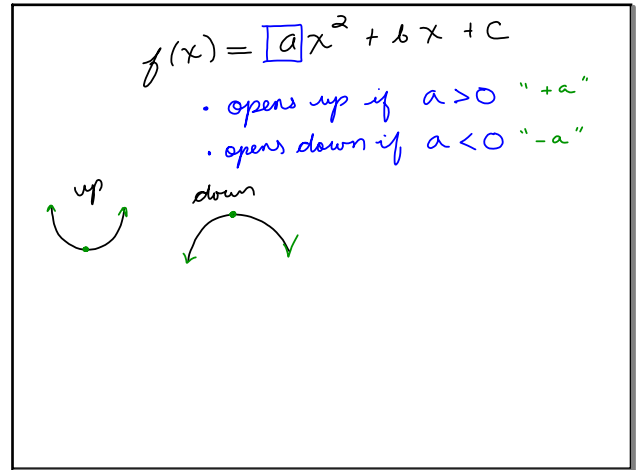 f(x) = ax² + bx + c
· opens up if a > 0 "+a"
· opens down if a < 0 "-a"
up down